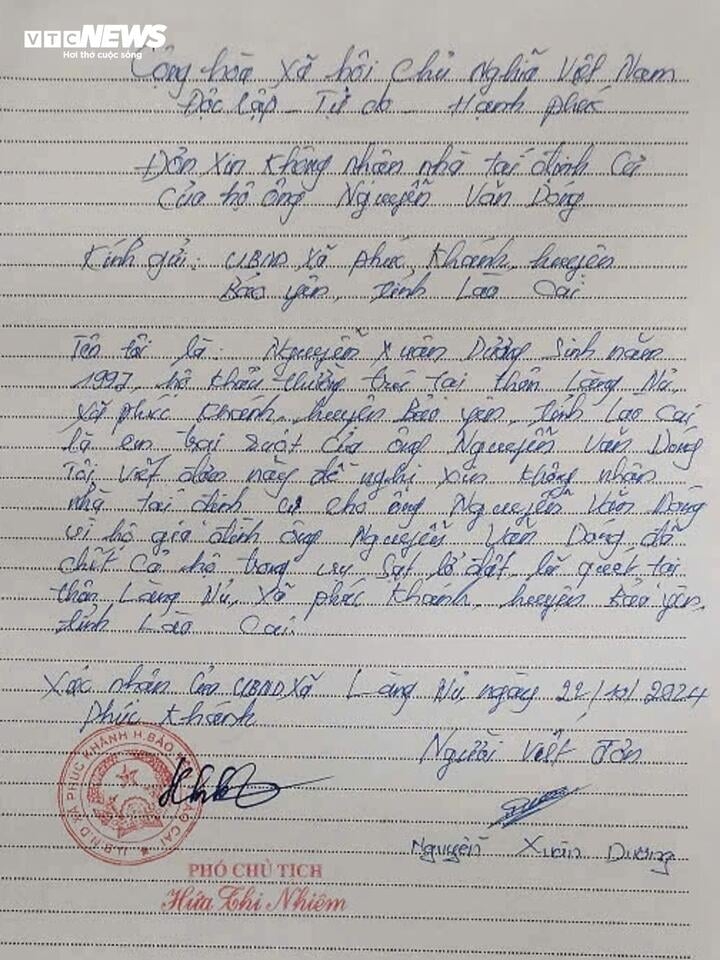 VTC NEWS
Hơi thở cuộc sống
Cộng hòa xã hội Chủ Nghĩa Việt Nam
Độc lập - Tự do - Hạnh phúc
Đơn xin không nhận nhà tái định cư
Của hộ ông Nguyễn Văn Dóng
Kính gửi: UBND xã phúc Khánh, huyện
Bảo yên, tỉnh Lào Cai
Tên tôi là: Nguyễn Xuân Dương Sinh năm
1997, hộ khẩu thường trú tại thôn Làng Nủ,
xã phúc Khánh, huyện Bảo yên, tỉnh Lào Cai
là em trai ruột của ông Nguyễn Văn Dóng
Tôi viết đơn này đề nghị xin không nhận
nhà tái định cư cho ông Nguyễn Văn Dóng
vì hộ gia đình ông Nguyễn Văn Dóng đã
chết cả hộ trong vụ sạt lở đất, lũ quét tại
thôn Làng Nủ, xã phúc Khánh, huyện Bảo yên,
tỉnh Lào Cai.
Xác nhận của UBND xã Làng Nủ, ngày 22/10/2024
Phúc Khánh
Người viết đơn
U.B.N.D XÃ PHÚC KHÁNH H.BẢO LÀO CAI
Nguyễn Xuân Dương
PHÓ CHỦ TỊCH
Hứa Thi Nhiêm